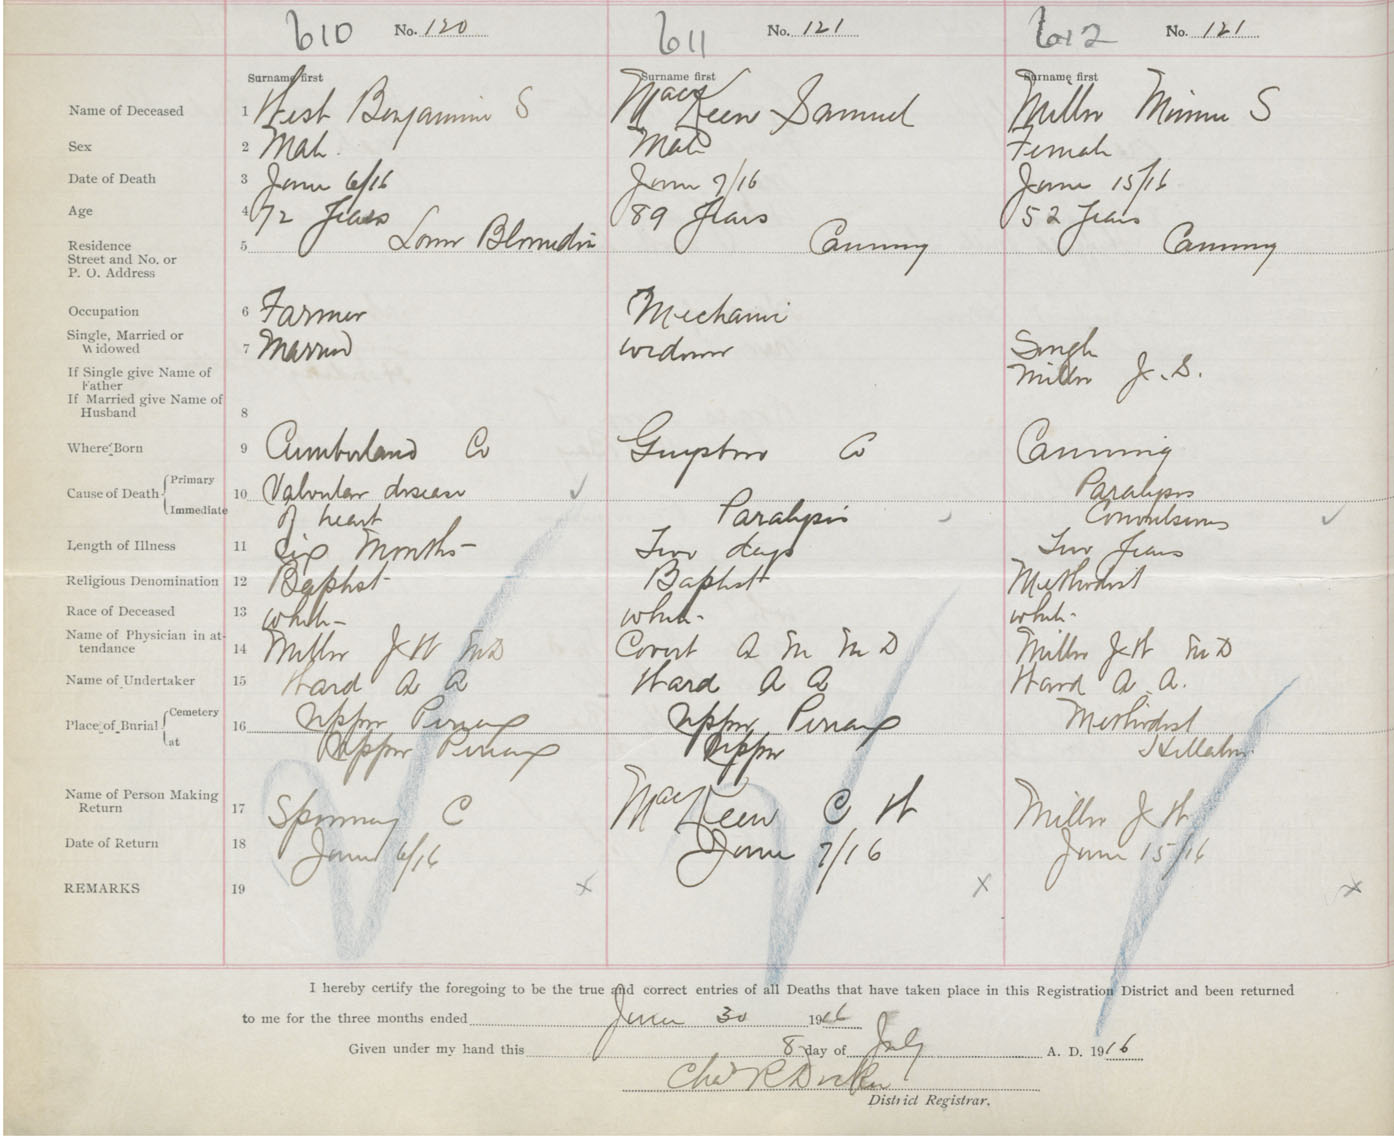 610 No. 120 611 No. 121 612 No. 121
Surname first Surname first Surname first
Name of Deceased 1 West Benjamin S MacKeen Samuel Miller Minnie S
Sex 2 Male Male Female
Date of Death 3 June 6/16 June 7/16 June 15/16
Age 4 72 Years 89 Years 52 Years
Residence 5 Lower Blomidon Canning Canning
Street and No. or
P. O. Address
Occupation 6 Farmer Mechanic
Single, Married or
Widowed 7 Married widower Single
If Single give Name of
Father Miller J. S.
If Married give Name of
Husband 8
Where Born 9 Cumberland Co Guysboro Co Canning
Cause of Death Primary 10 Valvular disease Paralysis
Immediate of heart Paralysis Convulsions
Length of Illness 11 Six Months Two days Two Years
Religious Denomination 12 Baptist Baptist Methodist
Race of Deceased 13 white white white
Name of Physician in at-
tendance 14 Miller J W M D Covert A M M D Miller J W M D
Name of Undertaker 15 Ward A A Ward A A Ward A. A.
Place of Burial Cemetery 16 Upper Pereau Upper Pereau Methodist
at Upper Pereau Upper Hillaton
Name of Person Making
Return 17 C MacKeen C W Miller J W
Date of Return 18 June 6/16 June 7/16 June 15/16
REMARKS 19 x x x
I hereby certify the foregoing to be the true and correct entries of all Deaths that have taken place in this Registration District and been returned
to me for the three months ended June 30 1916
Given under my hand this 8 day of July A. D. 1916
Chas R
District Registrar.